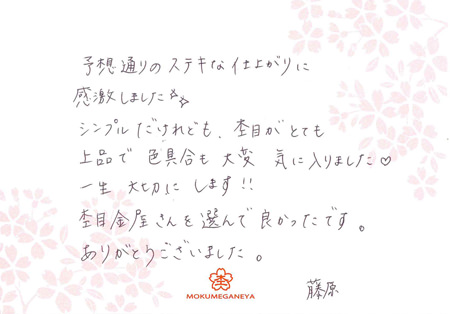 予想通りのステキな仕上がりに
感激しました☆☆
シンプルだけれども、杢目がとても
上品で 色具合も 大変 気に入りました♡
一生 大切に します!!
杢目金屋さんを選んで良かったです。
ありがとうございました。
杢
MOKUMEGANEYA
藤原